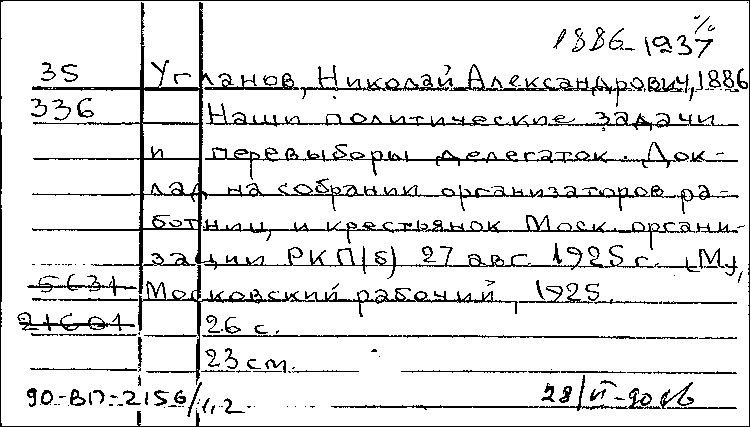 1886-1937
35 Угланов, Николай Александрович, 1886
336 Наши политические задачи
и перевыборы делегаток. Док-
лад на собрании организаторов ра-
ботниц и крестьянок Моск. органи-
зации РКП(б) 27 авг. 1925 г. [М],
5631 Московский рабочий, 1925.
21601 26 с.
23 см.
90-ВП-2156/1,2 28/VI-90